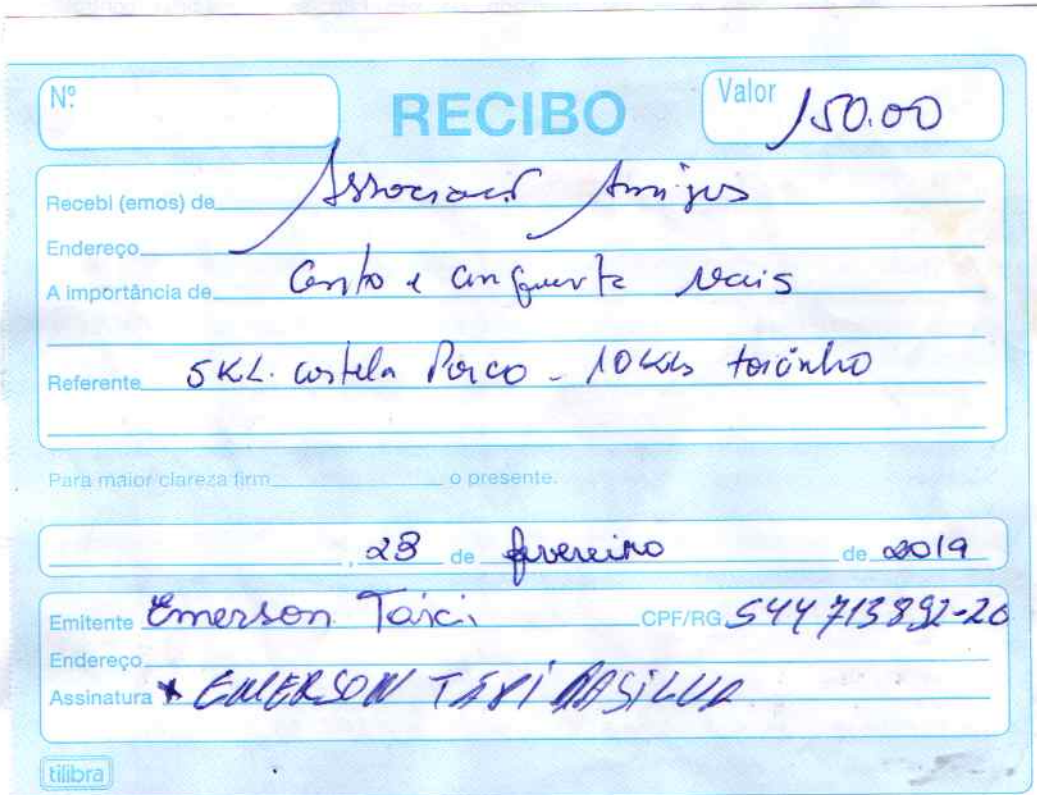 Nº
RECIBO
Valor 150.00
Recebi (emos) de Amigos
Endereço
A importância de Cento e cinquenta reais
Referente 5KL. costela Porco - 10 Kls toicinho
Para maior clareza firm o presente.
, 28 de fevereiro de 2019
Emitente Emerson CPF/RG 544 713 892-20
Endereço
Assinatura EMERSON DASILVA
tilibra